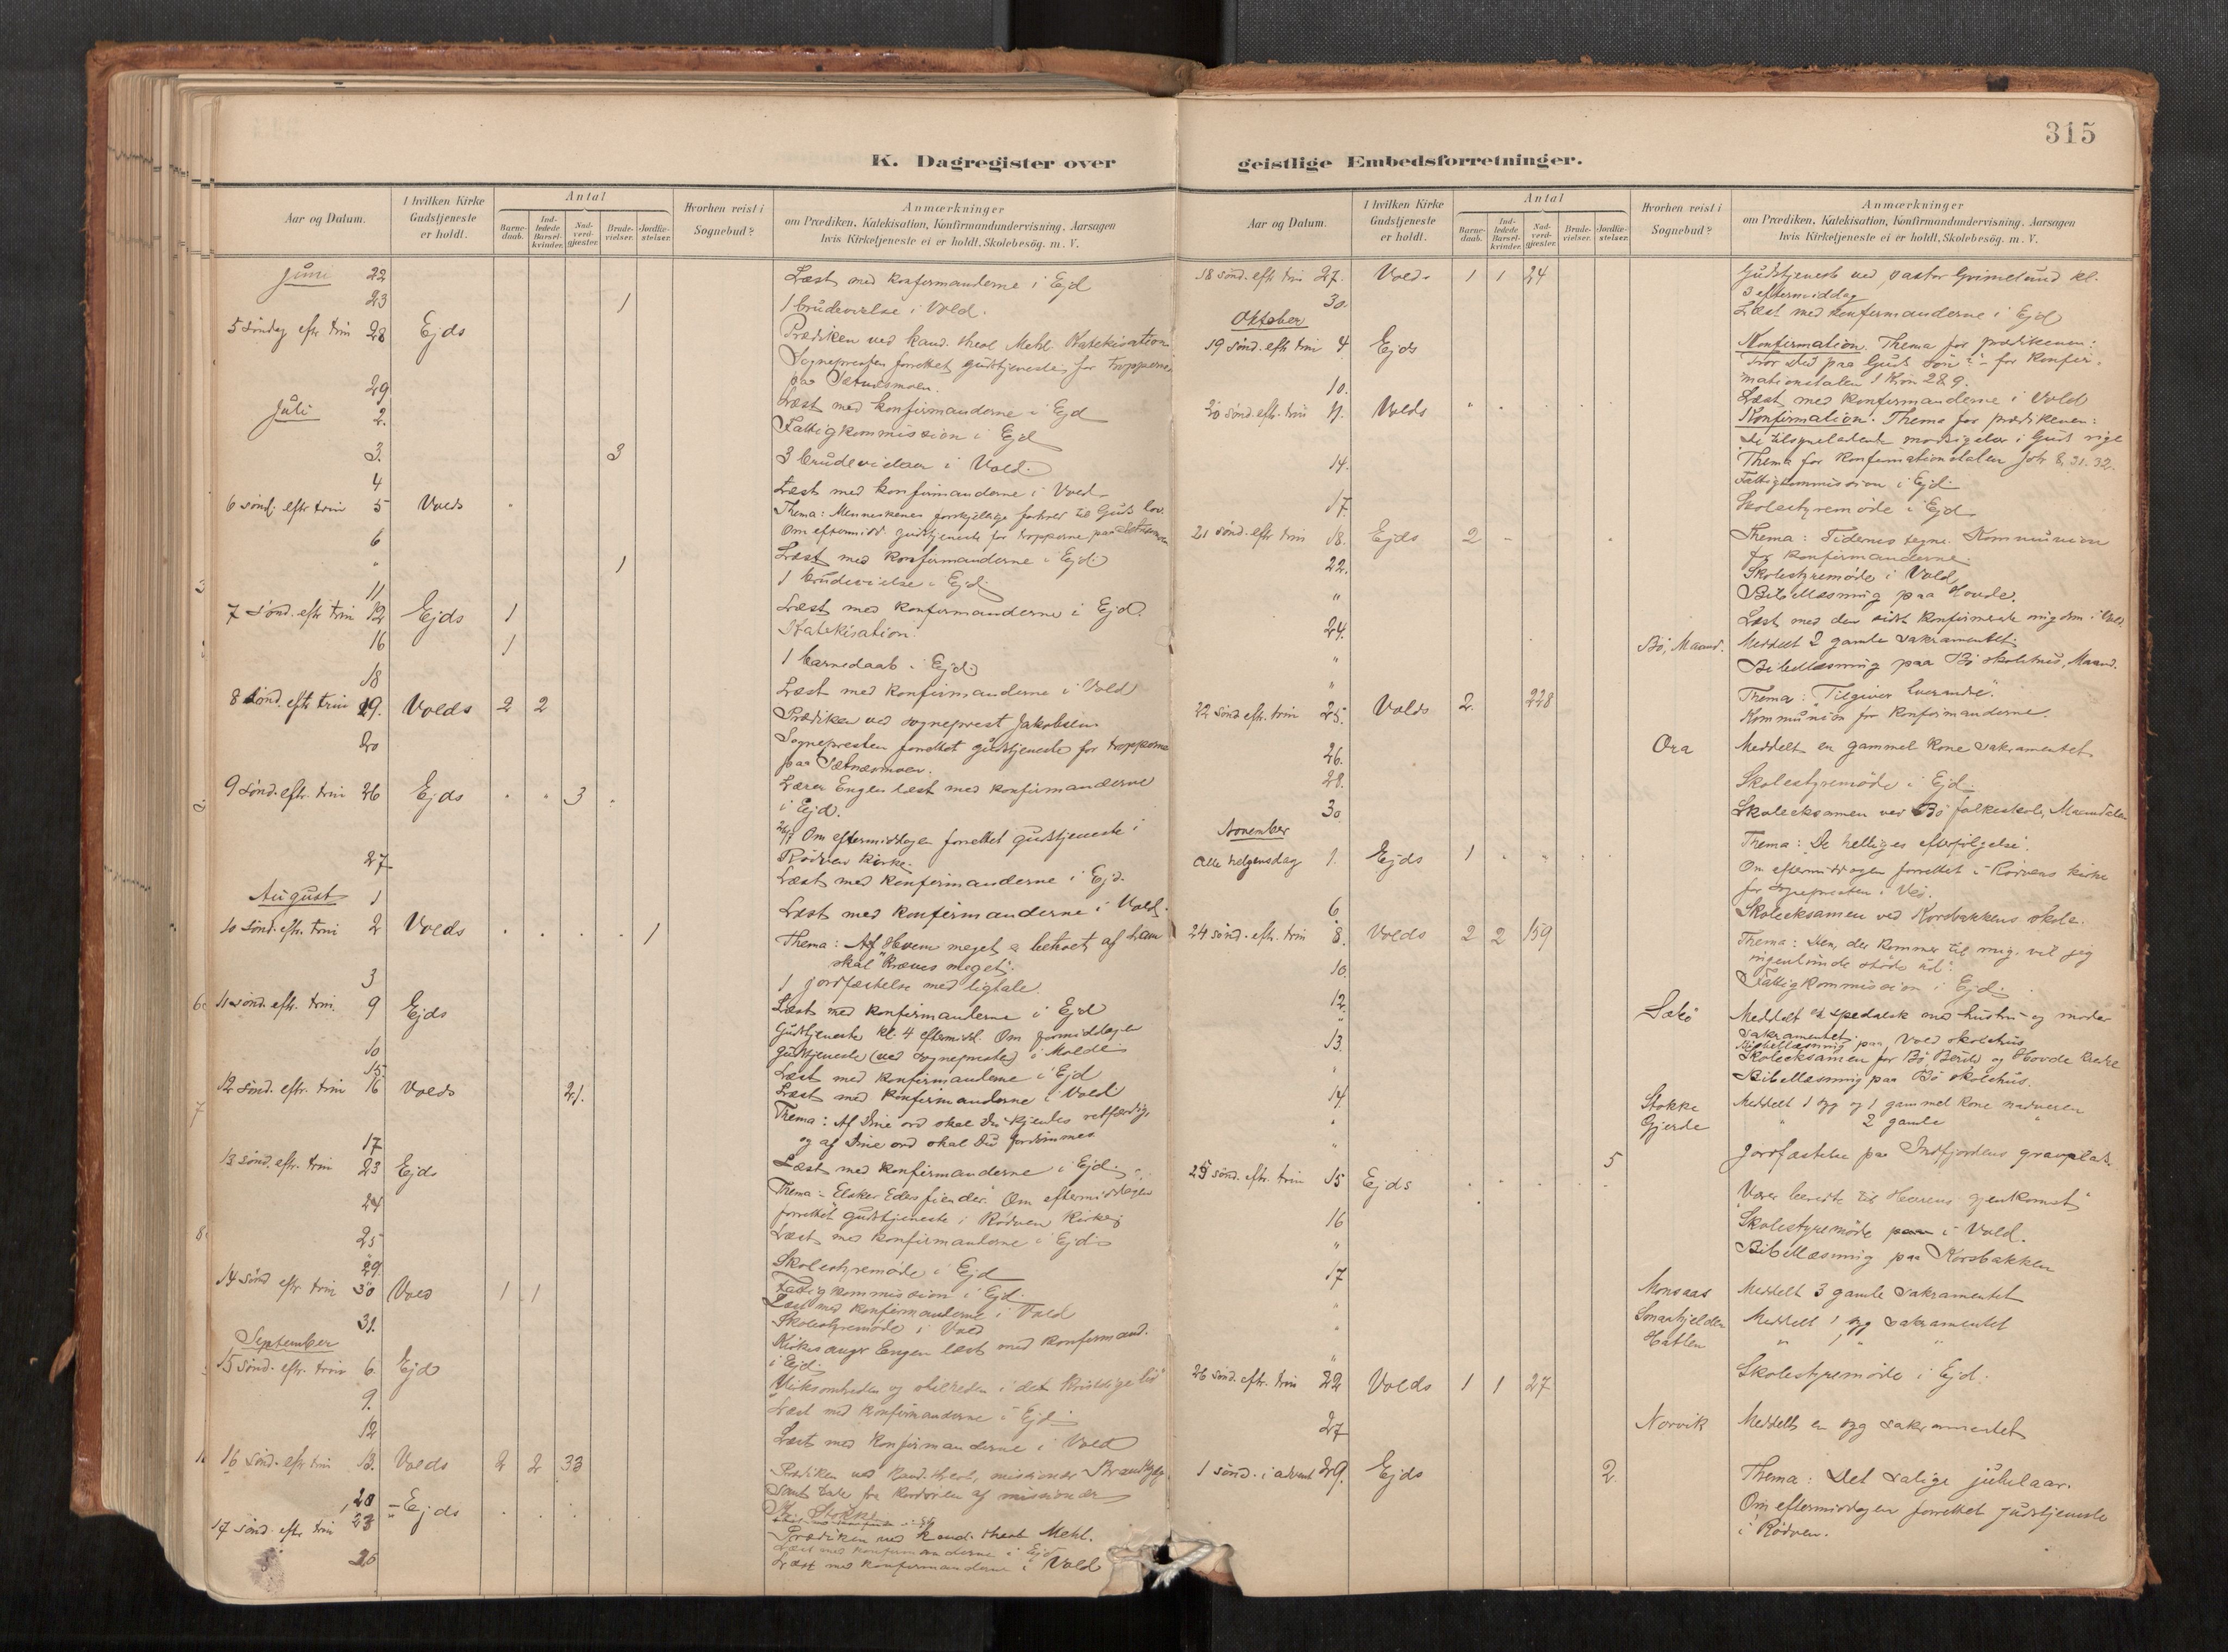 315
K. Dagregister over
geistlige Embedsforretninger.
Aar og Datum.
I hvilken Kirke Gudstjeneste er holdt.
Antal
Barne-daab.
Ind-ledede Barsel-kvinder.
Nad-verd-gjester.
Brude-vielser.
Jordfæ-stelser.
Hvorhen reist i Sognebud?
Anmærkninger
om Prædiken, Katekisation, Konfirmandundervisning, Aarsagen
hvis Kirketjeneste ei er holdt, Skolebesög. m. V.
Juni 22 Læst med konfirmanderne i Ejd
23 1 1 brudevielse i Vold.
5 söndag eftr trin 28 Ejds Prædiken ved kand. theol Mehl. Katekisation
Sognepresten forrettet gudstjeneste for tropperne
paa Sætnesmoen.
29 Læst med konfirmanderne i Ejd
Juli 2. Fattigkommission i Ejd
3. 3 3 brudevielser i Vold.
4 Læst med konfirmanderne i Vold
6 sönd. eftr trin 5 Volds Thema: Menneskenes forskjellige forhold til Guds lov.
Om eftermidd. gudstjeneste for tropperne paa Sætnesmoen
6 Læst med konfirmanderne i Ejd
" 1 1 brudevielse i Ejd
11 Læst med konfirmanderne i Ejd.
7 sönd. eftr trin 12 Ejds 1 Katekisation.
16 1 1 barnedaab i Ejd.
18 Læst med konfirmanderne i Vold
8 sönd. eftr trin 19. Volds 2 2 Prædiken ved sogneprest Jakobsen
20 Sognepresten forrettet gudstjeneste for tropperne
paa Sætnesmoen.
Lærer Engen læst med konfirmanderne
i Ejd.
9 sönd. eftr. trin 26 Ejds 3 26/7 Om eftermiddagen forrettet gudstjeneste i
Rödven kirke.
27 Læst med konfirmanderne i Ejd.
August 1 Læst med konfirmanderne i Vold.
10 sönd. eftr. trin 2 Volds 1 Thema: Af Hvem meget er betroet af ham
skal kræves meget.
1 jordfæstelse med ligtale.
3 Læst med konfirmanderne i Ejd
11 sönd. eftr. trin. 9 Ejds Gudstjeneste kl. 4 eftermidd. Om formiddagen
gudstjeneste (ved sognepresten) i Molde
10 Læst med konfirmanderne i Ejd
15. Læst med konfirmanderne i Vold
12 sönd. eftr trin 16 Volds 21. Thema: Af Dine ord skal Du kjendes retfærdig,
og af Dine ord skal Du fordömmes
17 Læst med konfirmanderne i Ejd.
13 sönd. eftr. trin 23 Ejds Thema: Elsker Eders fiender. Om eftermiddagen
forrettet gudstjeneste i Rödven kirke
24 Læst med konfirmanderne i Ejd
25 Skolestyremöde i Ejd
Fattigkommission i Ejd.
29. Læst med konfirmanderne i Vold
14 sönd eftr trin 30 Vold 1 1 Skolestyremöde i Vold
31. Kirkesanger Engen læst med konfirmand.
i Ejd.
September
15 sönd. eftr. trin 6 Ejd Virksomheden og stilheden i det kristelige liv
9. Læst med konfirmanderne i Ejd
12 Læst med konfirmanderne i Vold
16 sönd. eftr trin 13. Volds 2 2 33 Prædiken ved kand. theol., missionær
samt tale fra kordören af missionær
Stokke
20 Ejds
17 sönd. eftr trin Prædiken ved kand. theol Mehl.
Læst med konfirmanderne i Ejd
26 Læst med konfirmanderne i Vold
18 sönd. eftr trin 27. Volds 1 1 24 Gudstjeneste ved pastor Grimelund kl.
3 eftermiddag
30. Læst med konfirmanderne i Ejd
Oktober
19 sönd. eftr trin 4 Ejds Konfirmation. Thema for prædikenen:
Tror Du paa Guds sön? for konfir-
mationstalen 1 Krön 28.9.
10. Læst med konfirmanderne i Vold
20 sönd. eftr. trin 11. Volds Konfirmation. Thema for prædikenen:
De tilsyneladende modsigelser i Guds rige
Thema for konfirmationstalen Joh 8, 31-32.
14. Fattigkommission i Ejd
17. Skolestyremöde i Ejd
21 sönd. eftr trin 18. Ejds 2 Thema: Tidernes tegn. Kommunion
for konfirmanderne.
22. Skolestyremöde i Vold
" Bibellæsning paa Hovde.
24. Læst med den sidst konfirmerede ungdom i Vold.
" Bö, Maand. Meddelt 2 gamle sakramentet
" Bibellæsning paa Bö skolehus, Maand.
22 sönd eftr. trin 25. Volds 2. 228 Thema: "Tilgiver hverandre".
Kommunion for konfirmanderne.
26. Ora Meddelt en gammel kone sakramentet
28. Skolestyremöde i Ejd
30 Skoleeksamen ved Bö folkeskole, Maandalen
November
Alle helgensdag 1. Ejds 1 Thema: De helliges efterfölgelse.
Om eftermiddagen forrettet i Rödvens kirke
for sognepresten i Vei.
6. Skoleeksamen ved Korsbakkens skole.
24 sönd. eftr. trin 8. Volds 2 2 159 Thema: Den, der kommer til mig, vil jeg
ingenlunde stöde ud.
10. Fattigkommission i Ejd
12. Sætö Meddelt en spedalsk med hustru og moder
sakramentet.
" Bibellæsning paa Vold skolehus
13. Skoleeksamen for Bö og Hovde kredse
" Bibellæsning paa Bö skolehus.
14 Stokke Meddelt 1 syg og 1 gammel kone nadveren
" Gjerde " 2 gamle "
" 5 Jordfæstelse paa Indfjordens gravplads.
25 sönd. eftr. trin 15 Ejds "Værer beredte til Herrens gjenkomst"
16 Skolestyremöde i Vold.
" Bibellæsning paa Korsbakken
17 Monsaas Meddelt 3 gamle sakramentet
" Meddelt 1 syg sakramentet
" Hatlen " 1 " "
" Skolestyremöde i Ejd.
26 sönd. eftr. trin 22 Volds 1 1 27
27 Norvik Meddelt en syg sakramentet
1 sönd. i advent 29. Ejds 2 Thema: Det salige jubelaar.
Om eftermiddagen forrettet gudstjeneste
i Rödven.